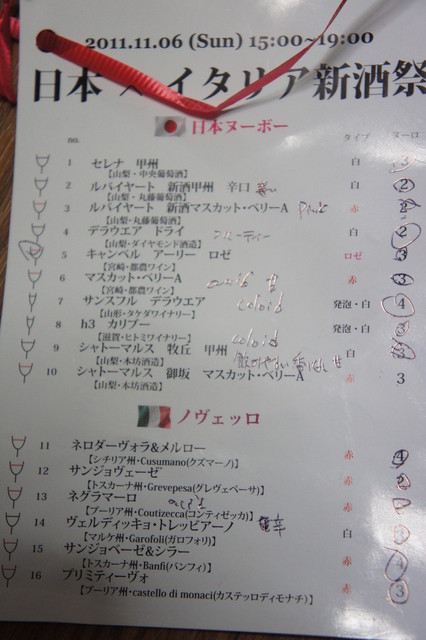 2011.11.06 (Sun) 15:00~19:00
日本 × イタリア新酒祭
日本ヌーボー
no. タイプ ヌーロ
1 セレナ 甲州 白 3
【山梨・中央葡萄酒】
2 ルバイヤート 新酒甲州 辛口 白 2
【山梨・丸藤葡萄酒】
3 ルバイヤート 新酒マスカット・ベリーA 赤 2
【山梨・丸藤葡萄酒】
4 デラウエア ドライ フルーティー 白 2
【山梨・ダイヤモンド酒造】
5 キャンベル アーリー ロゼ ロゼ 3
【宮崎・都農ワイン】
6 マスカット・ベリーA 甘 赤 3
【宮崎・都農ワイン】
7 サンスフル デラウエア coloid 発泡・白 4
【山形・タケダワイナリー】
8 h3 カリブー 発泡・白 3
【滋賀・ヒトミワイナリー】 coloid
9 シャトーマルス 牧丘 甲州 白 3
【山梨・本坊酒造】 飲みやすい 甘
10 シャトーマルス 御坂 マスカット・ベリーA 赤 3
【山梨・本坊酒造】
ノヴェッロ
11 ネロダーヴォラ&メルロー 赤 4
【シチリア州・Cusumano(クズマーノ)】
12 サンジョヴェーゼ 赤 2
【トスカーナ州・Grevepesa(グレヴェペーサ)】
13 ネグラマーロ 赤
【プーリア州・Coutizecca(コンティゼッカ)】
14 ヴェルディッキョ・トレッビアーノ 辛 白
【マルケ州・Garofoli(ガロフォリ)】
15 サンジョベーゼ&シラー 赤 4
【トスカーナ州・Banfi(バンフィ)】
16 プリミティーヴォ 赤 3
【プーリア州・castello di monaci(カステッロディモナチ)】